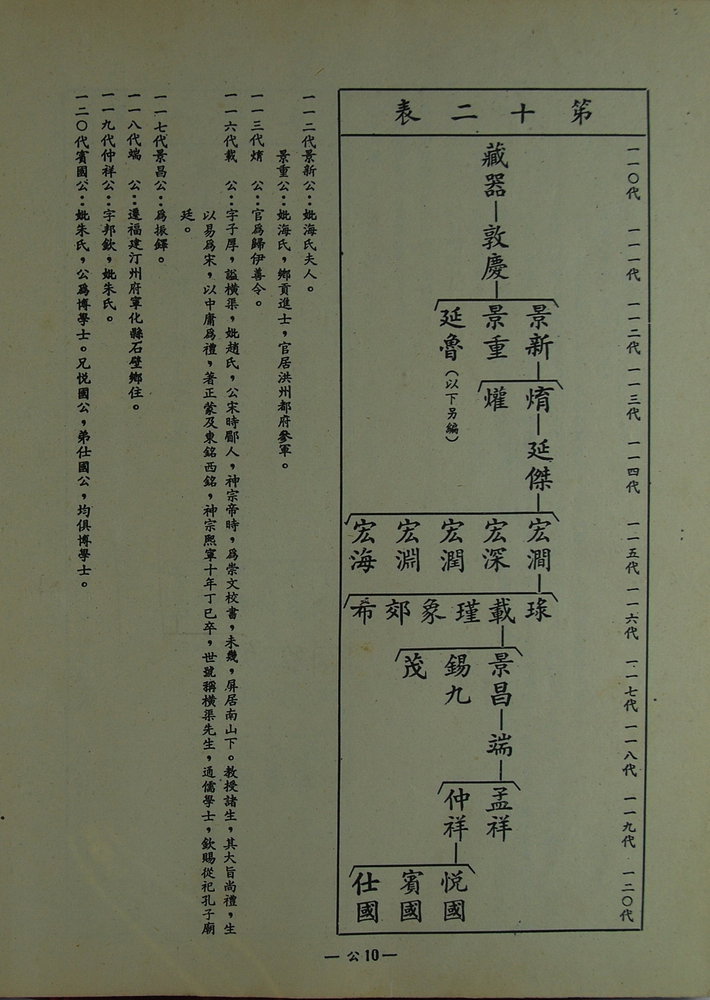 第十二表
一一〇代
一一一代
一一二代
一一三代
一一四代
一一五代
一一六代
一一七代
一一八代
一一九代
一二〇代
藏器
敦慶
景新
景重
延魯（以下另編）
焴
爟
延傑
宏澗
宏深
宏潤
宏淵
宏海
琭
載
瑾
象
郊
希
景昌
錫九
茂
端
孟祥
仲祥
悦國
賓國
仕國
一一二代景新公：妣海氏夫人。
景重公：妣海氏，鄉貢進士，官居洪州都府參軍。
一一三代焴　公：官爲歸伊善令。
一一六代載　公：字子厚，謚橫渠，妣趙氏，公宋時郿人，神宗帝時，爲崇文校書，未幾，屏居南山下。教授諸生，其大旨尚禮，生
以易爲宋，以中庸爲禮，著正蒙及東銘西銘，神宗熙寧十年丁巳卒，世號稱橫渠先生，通儒學士，欽賜從祀孔子廟
廷。
一一七代景昌公：爲振鐸。
一一八代端　公：遷福建汀州府寧化縣石壁鄉住。
一一九代仲祥公：字邦欽，妣朱氏。
一二〇代賓國公：妣朱氏，公爲博學士。兄悦國公，弟仕國公，均俱博學士。
— 公10 —